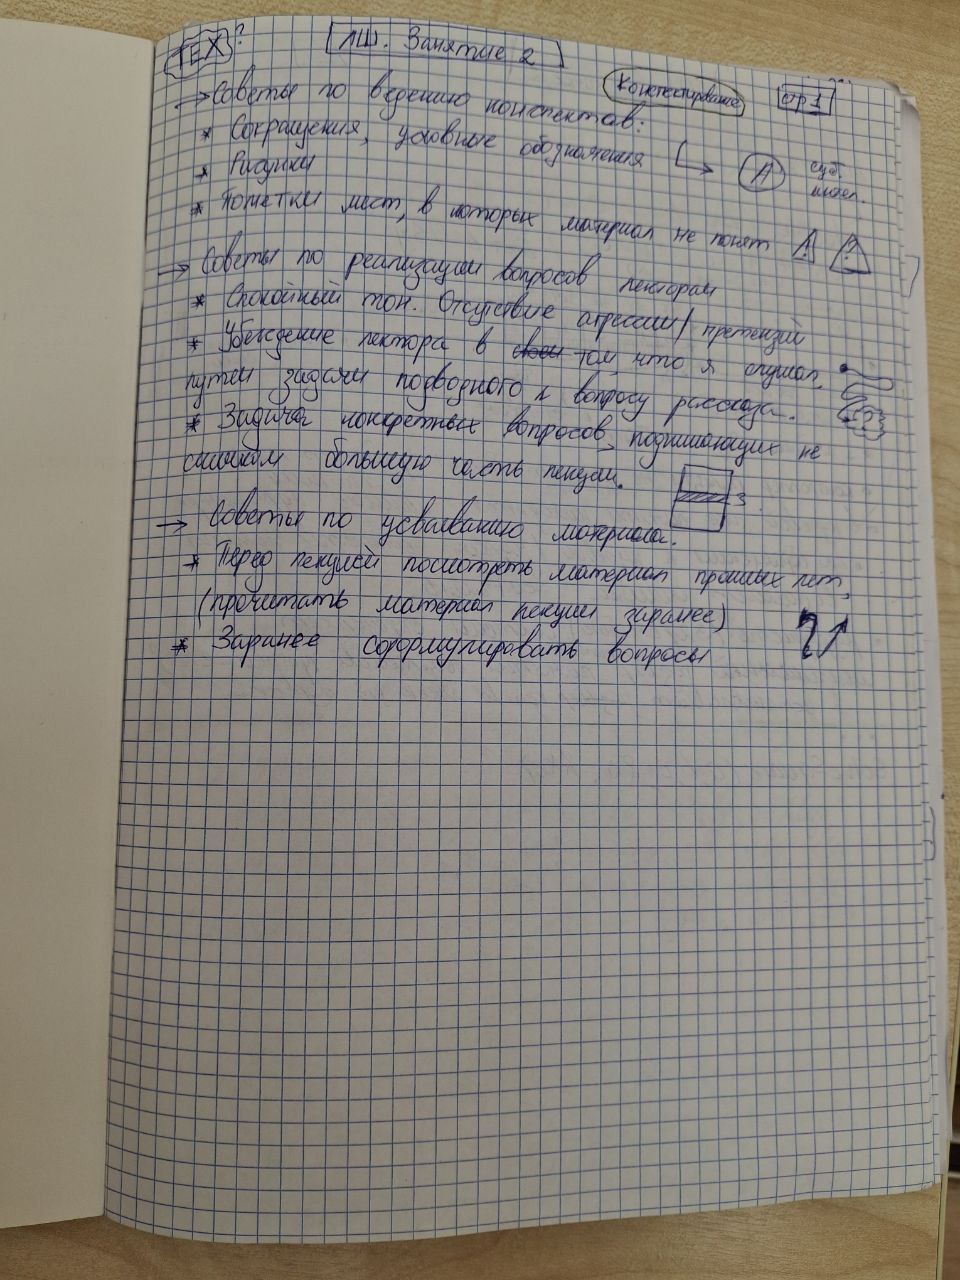 TEX?
ЛШ. Занятие 2
Конспектирование
стр 1
→ Советы по ведению конспектов:
* Сокращения, условные обозначения
* Рисунки
* Пометки мест, в которых материал не понят
→ Советы по реализации вопросов лекторам
* Спокойный тон. Отсутствие агрессии / претензий
* Убеждение лектора в том, что я слушал,
путём задачи подводного к вопросу рассказа.
* Задача конкретных вопросов, подпишающих не
слишком большую часть лекции.
→ Советы по усваиванию материала.
* Перед лекцией посмотреть материал прошлых лет,
(прочитать материал лекции заранее)
* Заранее сформулировать вопросы